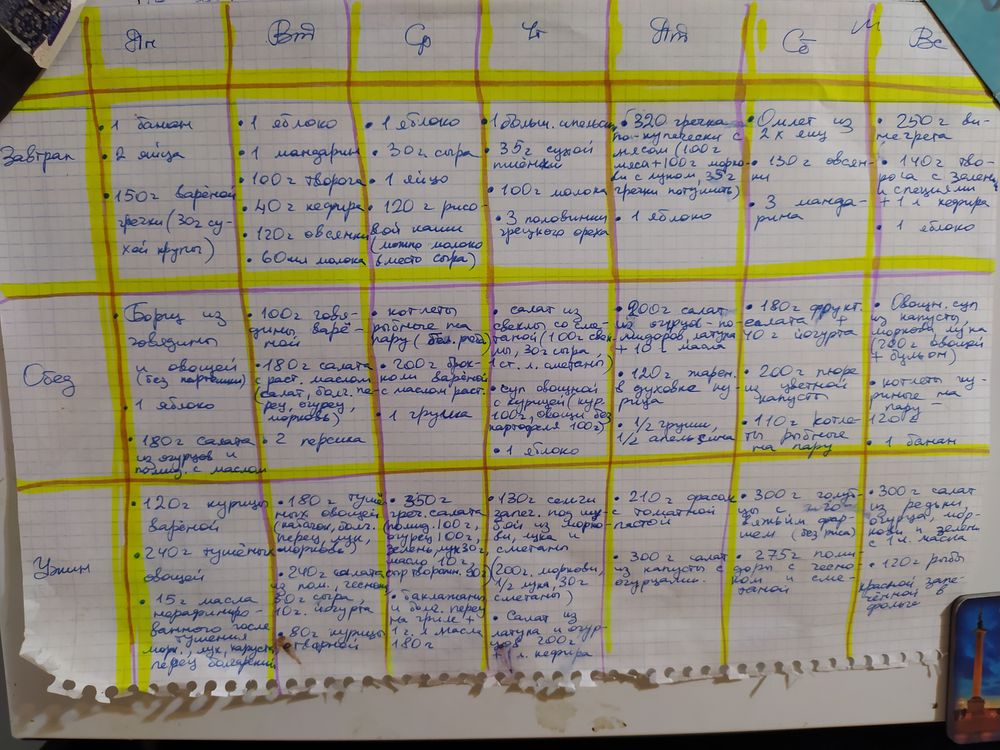 Пн
Вт
Ср
Чт
Пт
Сб
Вс
Завтрак
• 1 банан
• 2 яйца
• 150г варёной
гречки (30г су-
хой крупы)
• 1 яблоко
• 1 мандарин
• 100г творога
• 40г кефира
• 120г овсянки
• 60мл молока
• 1 яблоко
• 30г. сыра
• 1 яйцо
• 120г рисо-
вой каши
(можно молоко
вместо сыра)
• 1 больш. апельсин
• 35г сухой
пшёнки
• 100г молока
• 3 половинки
грецкого ореха
• 320г гречка
по-купечески с
мясом (100г
мяса+100г морко-
ви с луком, 35г
гречки потушить)
• 1 яблоко
• Омлет из
2х яиц
• 130г овсян-
ки
• 3 манда-
рина
• 250г ви-
негрета
• 140г тво-
рога с зелень
и специями
+ 1 л. кефира
• 1 яблоко
Обед
• Борщ из
говядины
и овощей
(без картошки)
• 1 яблоко
• 180г салата
из огурцов и
помид. с маслом
• 100г говя-
дины варё-
ной
• 180г салата
с раст. маслом
(салат, болг. пе-
рец, огурец,
морковь)
• 2 персика
• котлеты
рыбные на
пару (без риса)
• 200г брок-
коли варёной
с маслом раст.
• 1 груша
• салат из
свеклы со сме-
таной (100г свек-
лы, 30г сыра,
1 ст. л. сметаны)
• суп овощной
с курицей (кур.
100г, овощи без
картофеля 100г)
• 1 яблоко
• 200г салат
из огурцов-по-
мидоров, латука
+ 10г масла
• 120г жарен.
в духовке ку-
рица
• 1/2 груши,
1/2 апельсина
• 180г фрукт.
салата +
10г йогурта
• 200г пюре
из цветной
капусты
• 110г котле-
ты рыбные
на пару
• Овощн. суп
из капусты,
моркови лука
(200г овощей
+ бульон)
• котлеты ку-
риные на
пару -
120г
• 1 банан
Ужин
• 120г курицы
варёной
• 240г тушёных
овощей
• 15г масла
нерафиниро-
ванного после
тушения
морк., лук, капуста,
перец болгарский
• 180г тушё-
ных овощей
(кабачок, болг.
перец, лук,
морковь)
• 240г салата
из пом., чеснок,
30г сыра,
10г. йогурта
• 80г курицы
отварной
• 350г
греч. салата
(помид. 100г,
огурец 100г,
зелень, лук 30г,
масло 10г,
сыр творожн. 30г)
• баклажаны
и болг. перец
на гриле +
1 ч. л масла
180г
• 130г семги
запеч. под шу-
бой из морко-
ви, лука и
сметаны
(200г. моркови,
1/2 лука, 30г
сметаны)
• Салат из
латука и огур-
цов 200г
+ 1 л. кефира
• 210г фасоль
с томатной
пастой
• 300г салат
из капусты с
огурцами.
• 300г голуб-
цы с
вяжьим фар-
шем (без риса)
• 275г поми-
доры с чесно-
ком и сме-
таной
• 300г салат
из редьки,
огурца, мор-
кови и зелени
с 1 л. масла
• 120г рыбы
красной запе-
чённой в
фольге